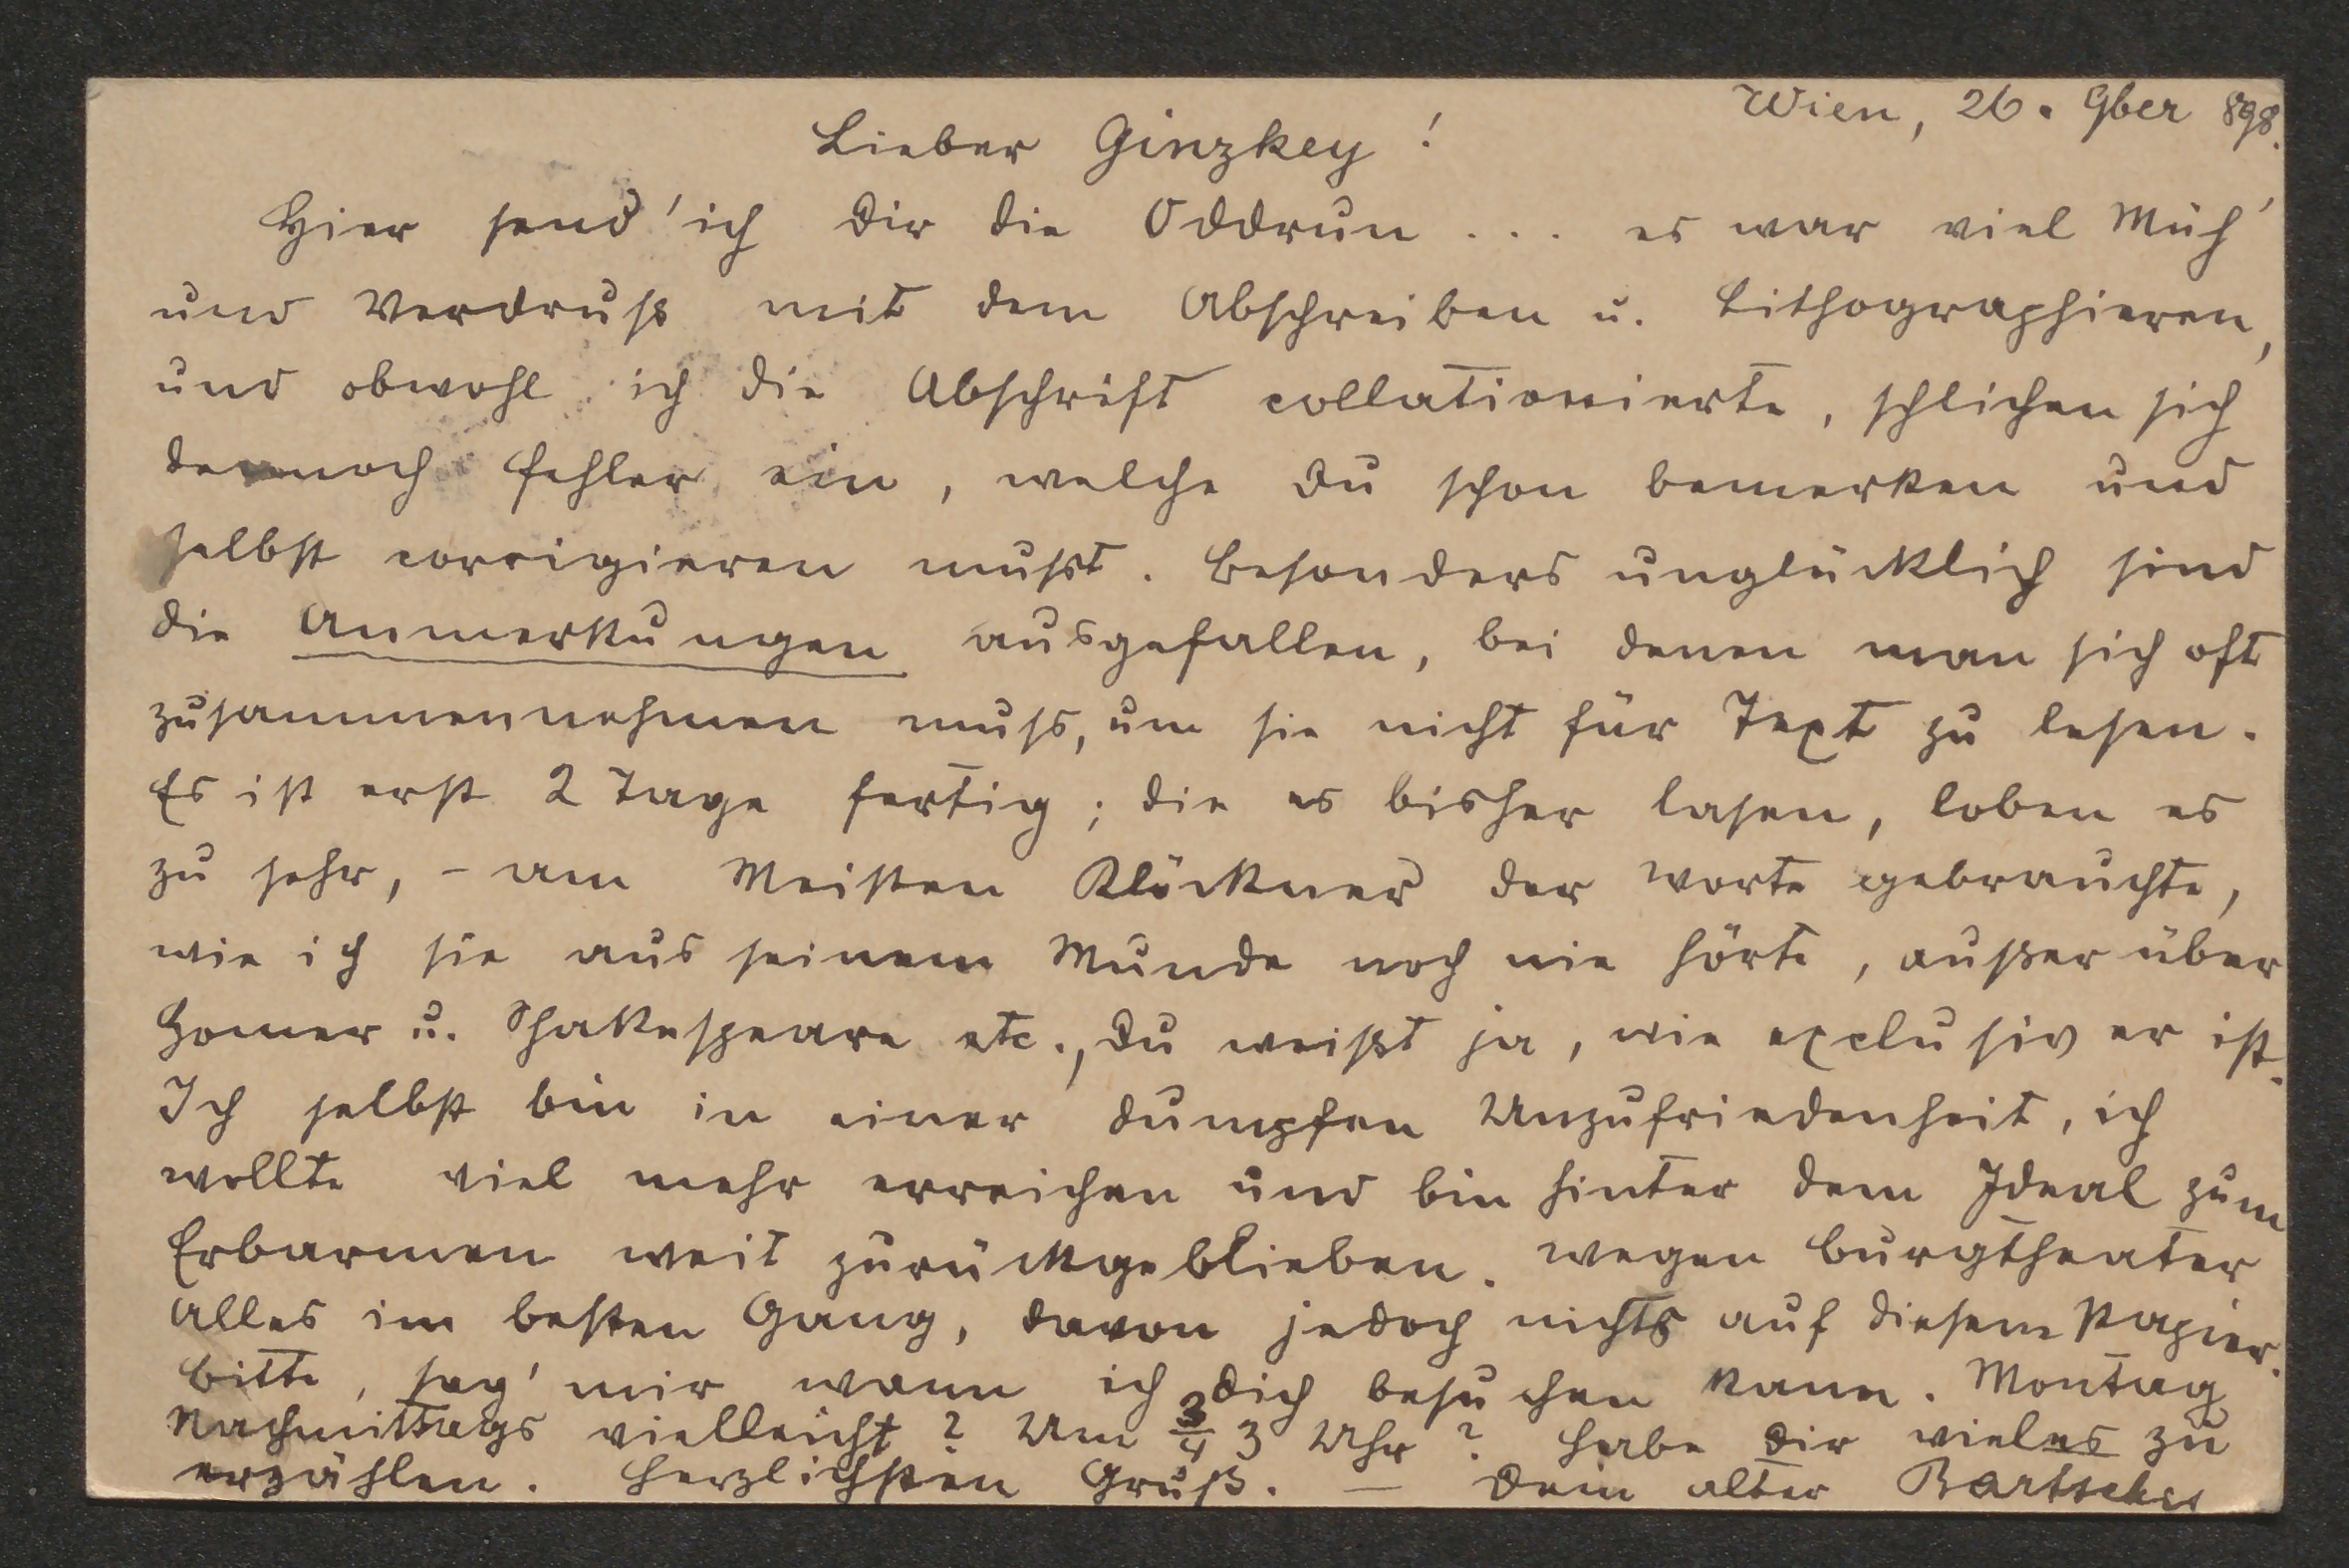 Wien, 26. 9ber 898.
Lieber Ginzkey!
Hier send' ich Dir die Oddrun . . . es war viel Müh'
und Verdruß mit dem Abschreiben u. Lithographieren,
und obwohl ich die Abschrift collationierte, schlichen sich
dennoch Fehler ein, welche Du schon bemerken und
selbst corrigieren mußt. Besonders unglücklich sind
die Anmerkungen ausgefallen, bei denen man sich oft
zusammennehmen muss, um sie nicht für Text zu lesen.
Es ist erst 2 Tage fertig; die es bisher lasen, loben es
zu sehr, – am Meisten Klöckner der Worte gebrauchte,
wie ich sie aus seinem Munde noch nie hörte, außer über
Homer u. Shakespeare etc., Du weißt ja, wie exclusiv er ist.
Ich selbst bin in einer dumpfen Unzufriedenheit, ich
wollte viel mehr erreichen und bin hinter dem Ideal zum
Erbarmen weit zurückgeblieben. Wegen Burgtheater
Alles im besten Gang, davon jedoch nichts auf diesem Papier.
Bitte, sag' mir wann ich Dich besuchen kann. Montag
Nachmittags vielleicht? Um 3/4 3 Uhr? Habe Dir vieles zu
erzählen. Herzlichsten Gruß. — Dein alter Bartsch